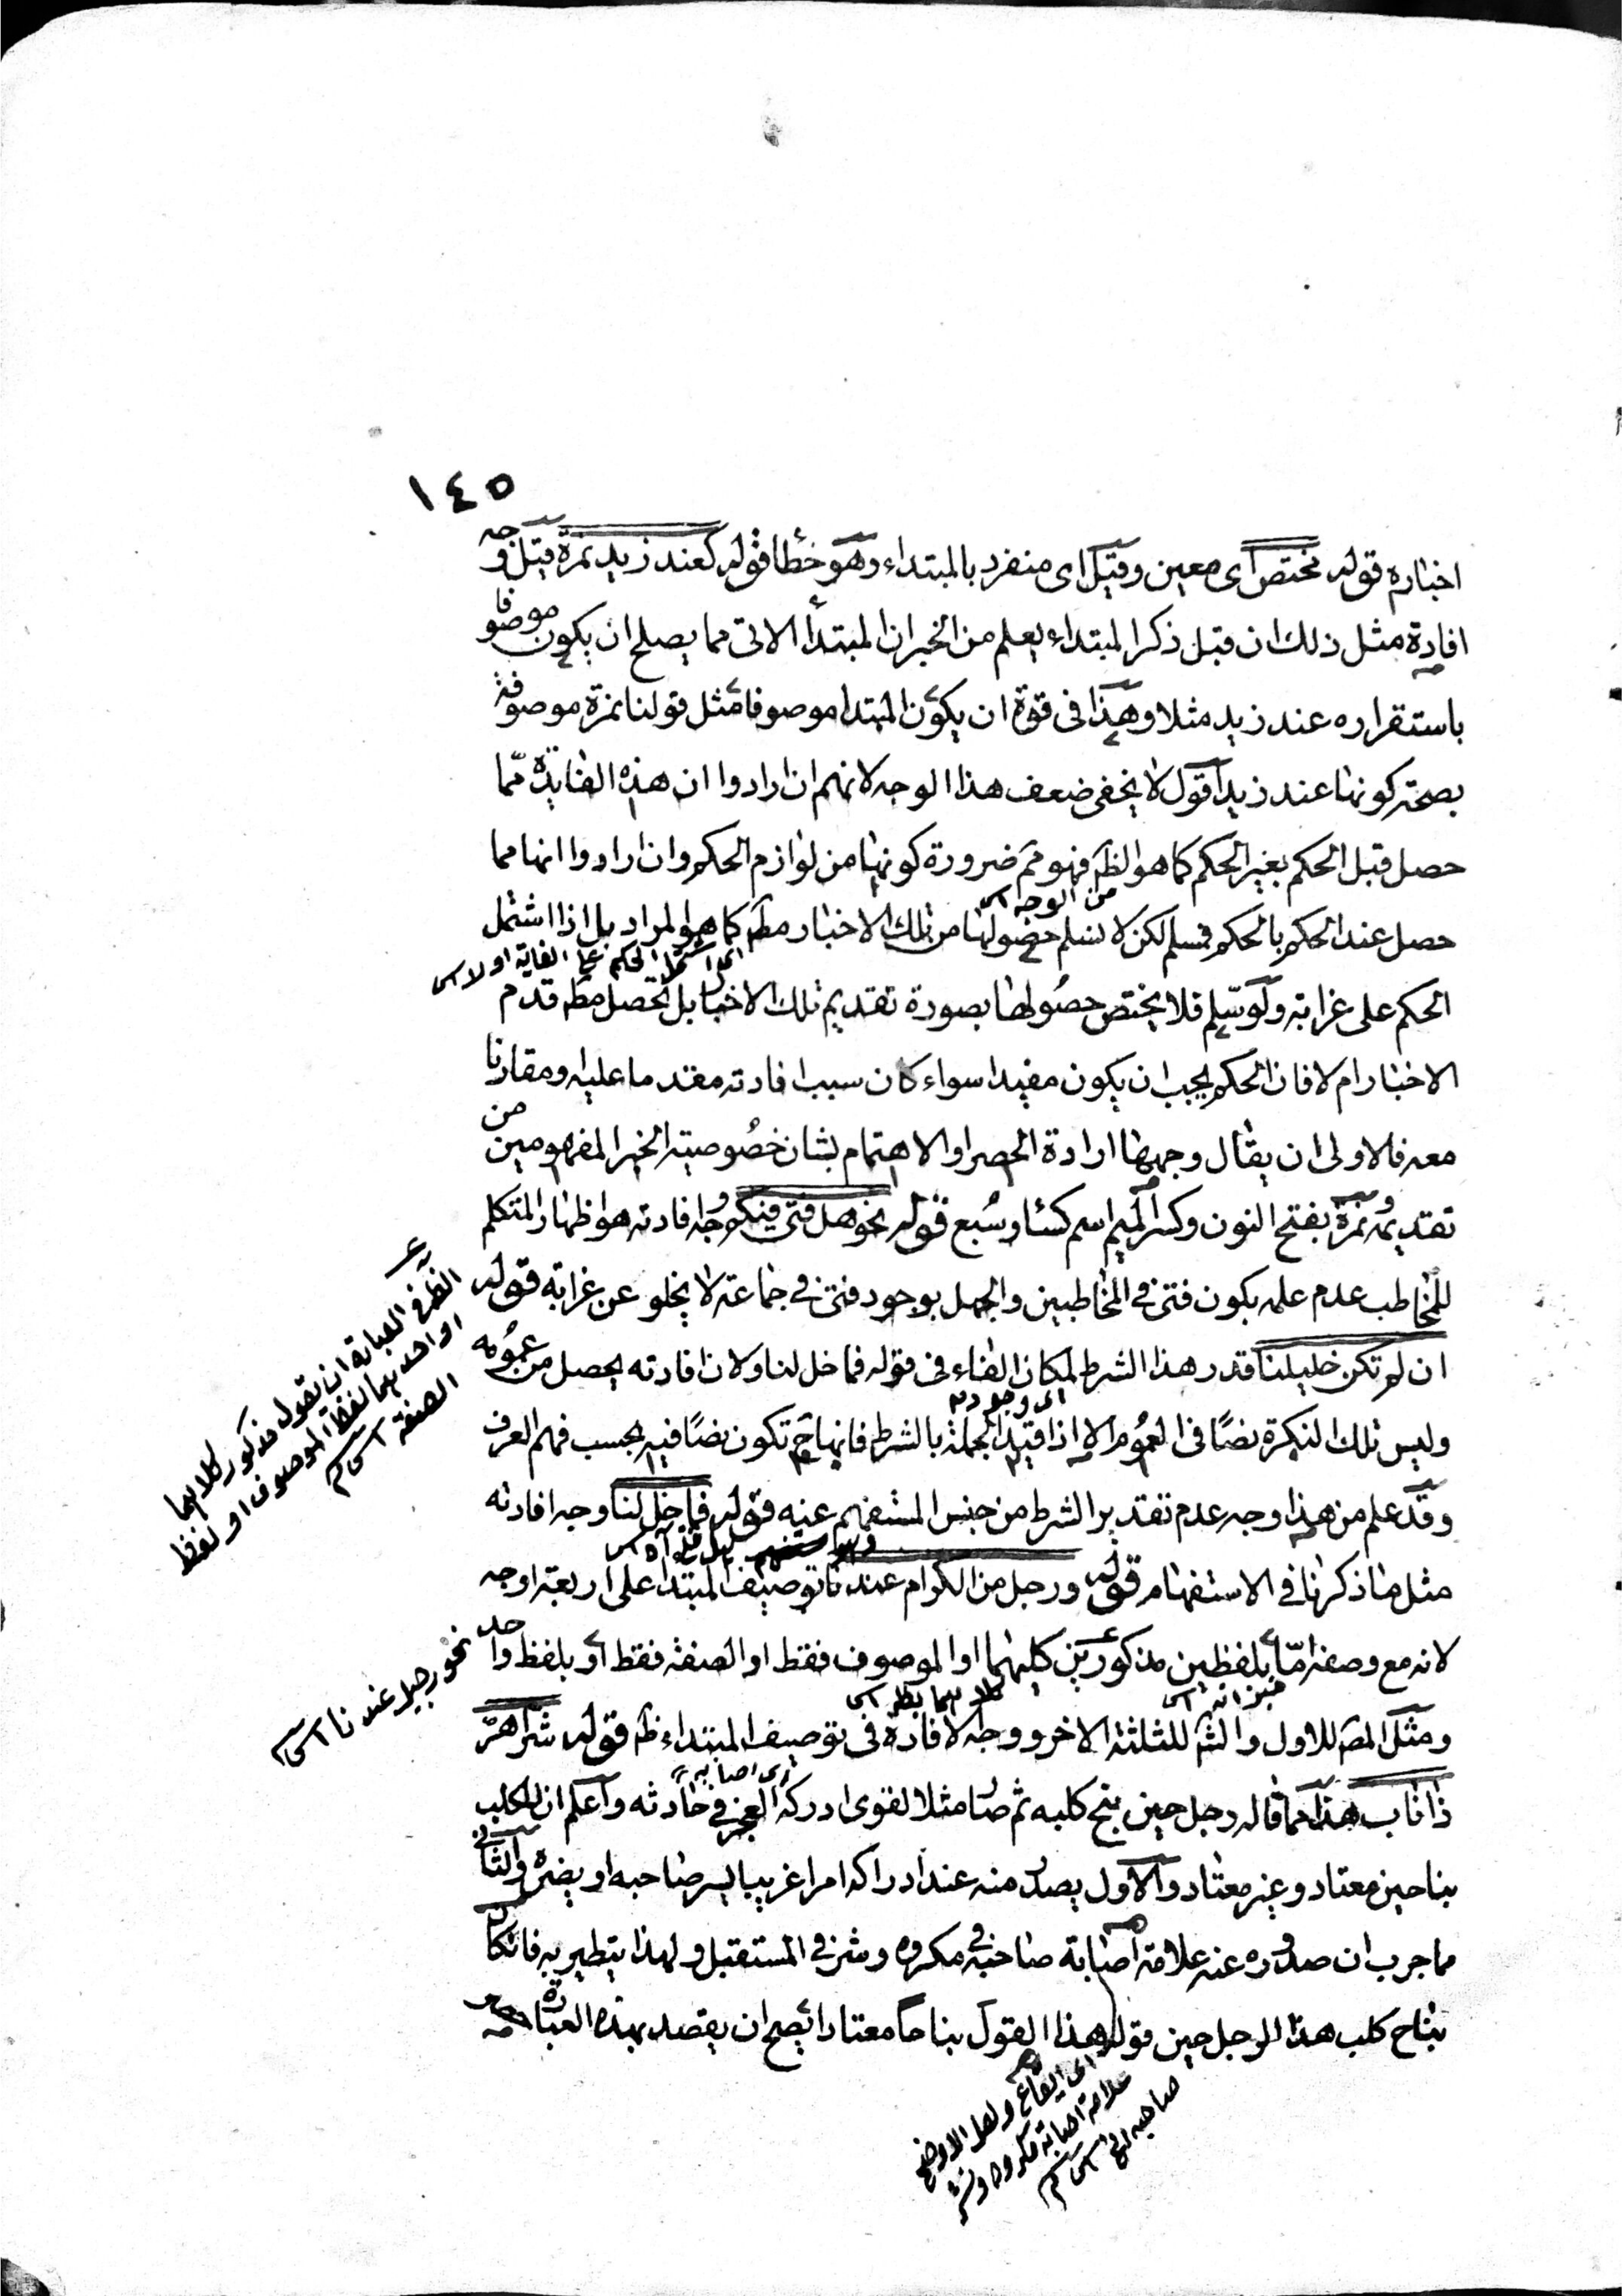 ١٤٥
اخباره قوله مختص اى معين وقيل اى منفرد بالمبتداء وهو خطأ قوله كعند زيد نمرة قيل وجه
افادة مثل ذلك ان قبل ذكر المبتداء يعلم من الخبر ان المبتدأ الاتى مما يصلح ان يكون موصوفا
باستقراره عند زيد مثلا وهذا فى قوة ان يكون المبتدا موصوفا مثل قولنا نمرة موصوفة
بصحة كونها عند زيد اقول لا يخفى ضعف هذا الوجه لانهم ان ارادوا ان هذه الفايدة مما
حصل قبل الحكم بغير الحكم كما هو الظ فهو مم ضرورة كونها من لوازم الحكم وان ارادوا انها مما
من الوجه
حصل عند الحكم بالحكم فمسلم لكن لا نسلم حصولها من تلك الاخبار مط كما هو المراد بل اذا اشتمل
اى اشتمل الحكم على الغابة او لا
الحكم على غرابته ولو سلم فلا يختص حصولها بصورة تقديم تلك الاخبار بل تحصل مط قدم
الاخبار ام لا فان الحكم يجب ان يكون مفيدا سواء كان سبب افادته مقدما عليه ومقارنا
معه فالاولى ان يقال وجهها ارادة الحصر او الاهتمام بشان خصوصية الخبر المفهومين من
تقديمه ونمرة بفتح النون وكسر الميم اسم كساء وسبع قوله نحو هل فتى فيكم وجه افادته هو اظهار المتكلم
للمخاطب عدم علمه بكون فتى فى المخاطبين والجهل بوجود فتى فى جماعة لا يخلو عن غرابة قوله
ان لم تكن خليلنا قدر هذا الشرط لمكان الفاء فى قوله فما خل لنا ولان افادته يحصل من عمومه
اى وجوده
وليس تلك النكرة نصا فى العموم الا اذا قيد الجملة بالشرط فانها ح تكون نصا فيه بحسب فهم العرف
وقد علم من هذا وجه عدم تقدير الشرط من جنس المستفهم عنه قوله فما خل لنا وجه افادته
مثل ما ذكرنا فى الاستفهام قوله ورجل من الكرام عندنا توصيف المبتدا على اربعة اوجه
لانه مع وصفه اما بلفظين مذكورين كليهما او الموصوف فقط او الصفة فقط او بلفظ واحد
ومثل المص للاول والش للثلثة الاخر ووجه الافادة فى توصيف المبتداء ظ قوله شر اهر
ذا ناب هذا مما قاله رجل حين نبح كلبه ثم صار مثلا لقوى ادركه العجز فى حادثه واعلم ان للكلب
اى اصابه
نباحين معتاد وغير معتاد والاول يصدر منه عند ادراكه امرا غريبا يسر صاحبه او يضره والثانى
مما جرب ان صدوره عنه علامة اصابة صاحبه فى مكروه وشر فى المستقبل ولهذا يتطير به فان كان
نباح كلب هذا الرجل حين قوله هذا القول نباحا معتادا يصح ان يقصد بهذه العبارة
الظ فى العبارة ان يقول مذكور كلاهما
او احدهما لفظ الموصوف او لفظ
الصفة
نحو رجيل عندنا
اى ايقاع ولعل الاوضح
علامة اصابة مكروه وشر
صاحبه الخ